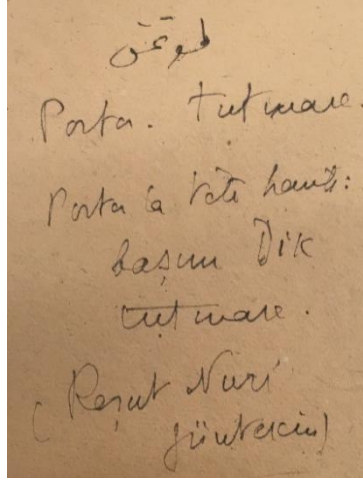 طوتمق
Porter. tutmak.
Porter la tête haute:
başını Dik
tutmak.
(Reşat Nuri
Güntekin)